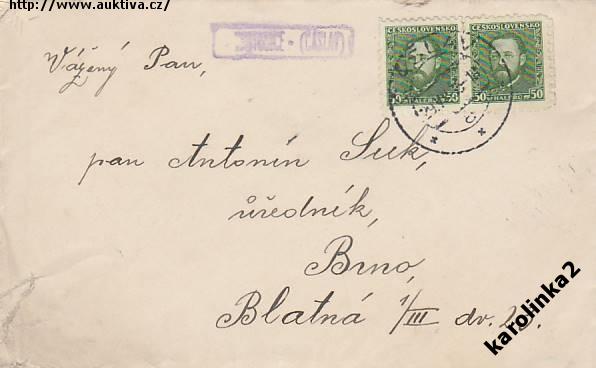 http://www.auktiva.cz/
(ČÁSLAV)
ČESKOSLOVENSKO
ČESKOSLOVENSKO
50 HALÉŘŮ 50
HALÉŘŮ 50
Vážený Pan,
pan Antonín Suk,
úředník,
Brno,
Blatná 1/III dv. 25.
karolinka2